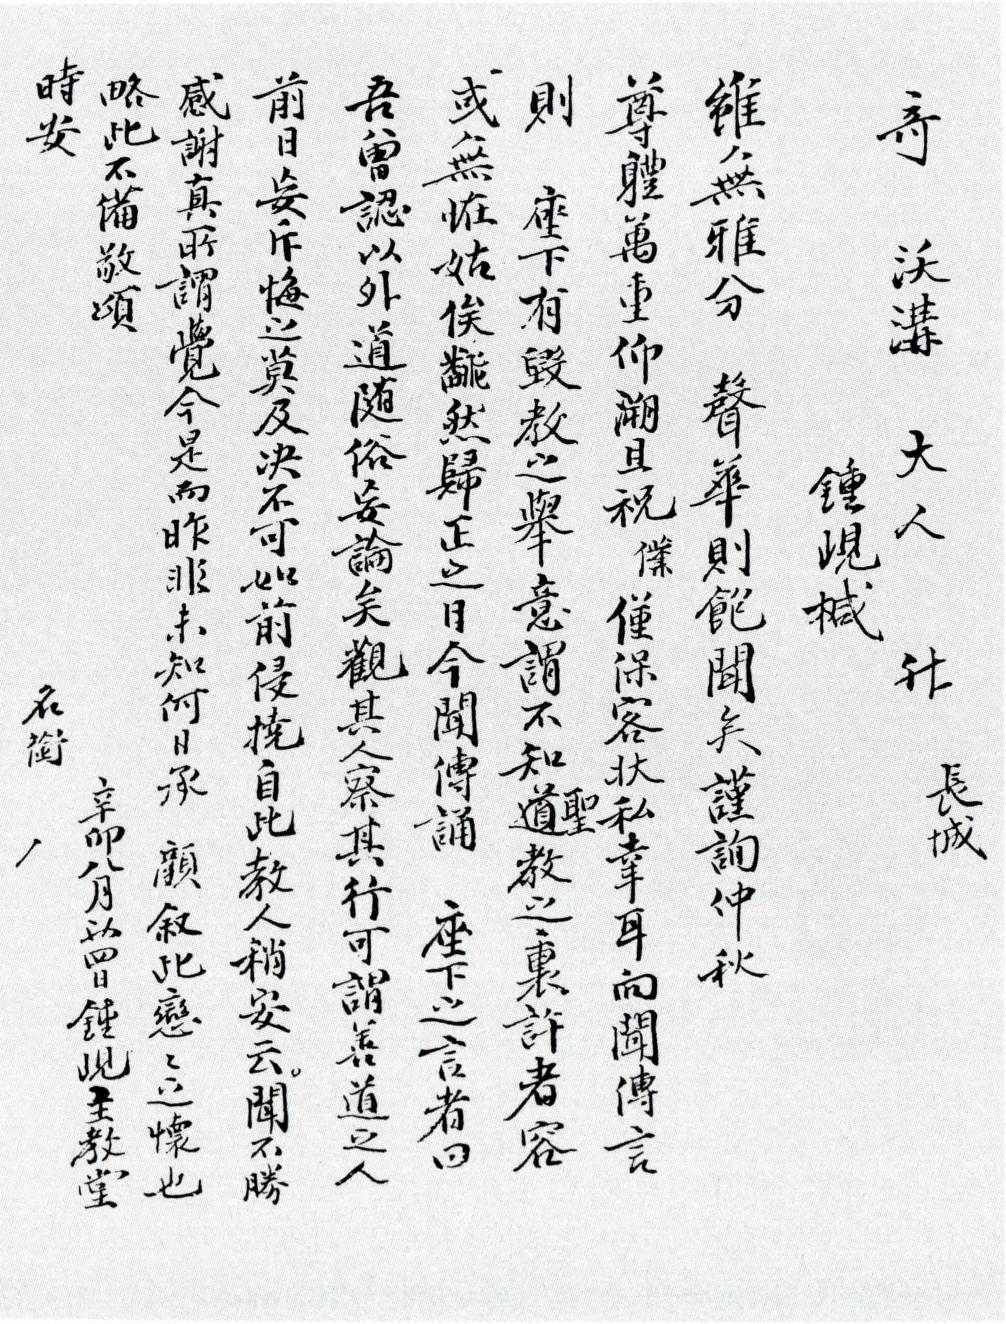 奇 沃溝 大人 升 長城
鍾峴椷
雖無雅分 聲華則飽聞矣謹詢仲秋
尊體萬重仰溯且祝僕僅保客狀私幸耳向聞傳言
則 座下有毀教之舉意謂不知聖道教之裏許者容
或無恠姑俟飜然歸正之日今聞傳誦 座下之言者曰
吾曾認以外道随俗妄論矣觀其人察其行可謂善道之人
前日妄斥悔之莫及决不可如前侵撓自此教人稍安云。聞不勝
感謝真所謂覺今是而昨非未知何日承 顔叙此戀〻之懷也
略此不備敬頌
時安
辛卯八月廿四日鍾峴圣教堂
名銜